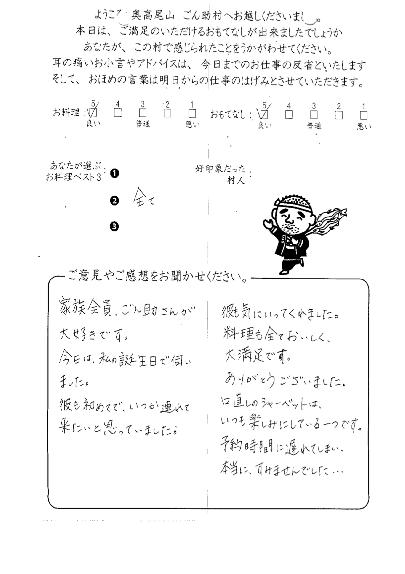 ようこそ 奥高尾山 ごん助村へお越しくださいまし。
本日は、ご満足のいただけるおもてなしが出来ましたでしょうか
あなたが、この村で感じられたことをうかがわせてください。
耳の痛いお小言やアドバイスは、今日までのお仕事の反省といたします
そして、おほめの言葉は明日からの仕事のはげみとさせていただきます。
お料理: 5 4 3 2 1 おもてなし: 5 4 3 2 1
良い 普通 悪い 良い 普通 悪い
あなたが選ぶ
お料理ベスト3
❶
❷ 全て
❸
好印象だった
村人
ご意見やご感想をお聞かせください。
家族全員、ごん助さんが
大好きです。
今日は、私の誕生日で伺い
ました。
彼も初めてで、いつか連れて
来たいと思っていました。
彼も気にいってくれました。
料理も全ておいしく、
大満足です。
ありがとうございました。
口直しのシャーベットは、
いつも楽しみにしている一つです。
予約時間に遅れてしまい、
本当に、すみませんでした…